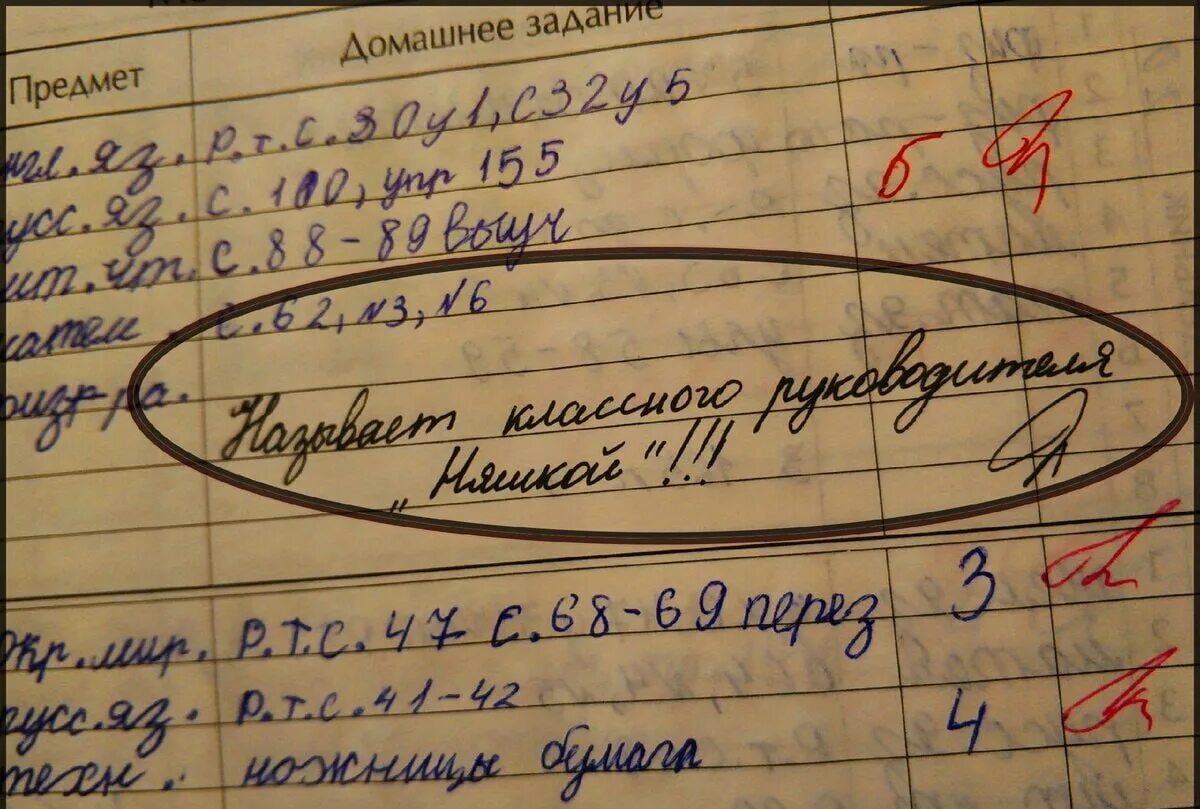 Предмет
Домашнее задание
нгл.яз. р.т.с.30у1, с32у5
усс.яз. с.100, упр 155 5
ит.чт. с.88-89 выуч
матем. с.62, №3, №6
физк-ра.
Называет классного руководителя
„Няшкой"!!!
Окр.мир. р.т.с.47 с.68-69 перез 3
русс.яз. р.т.с.41-42
техн. ножницы бумага 4